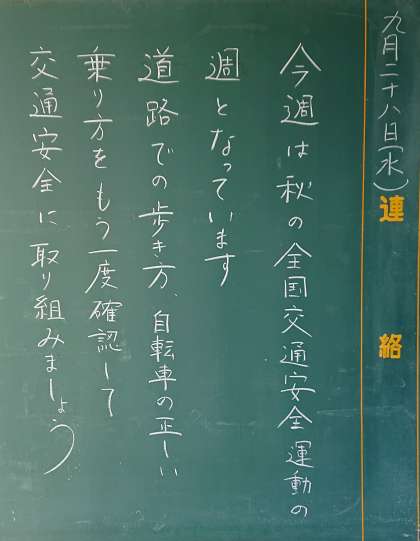 九月二十八日(水)
連絡
今週は秋の全国交通安全運動の
週となっています
道路での歩き方、自転車の正しい
乗り方をもう一度確認して
交通安全に取り組みましょう